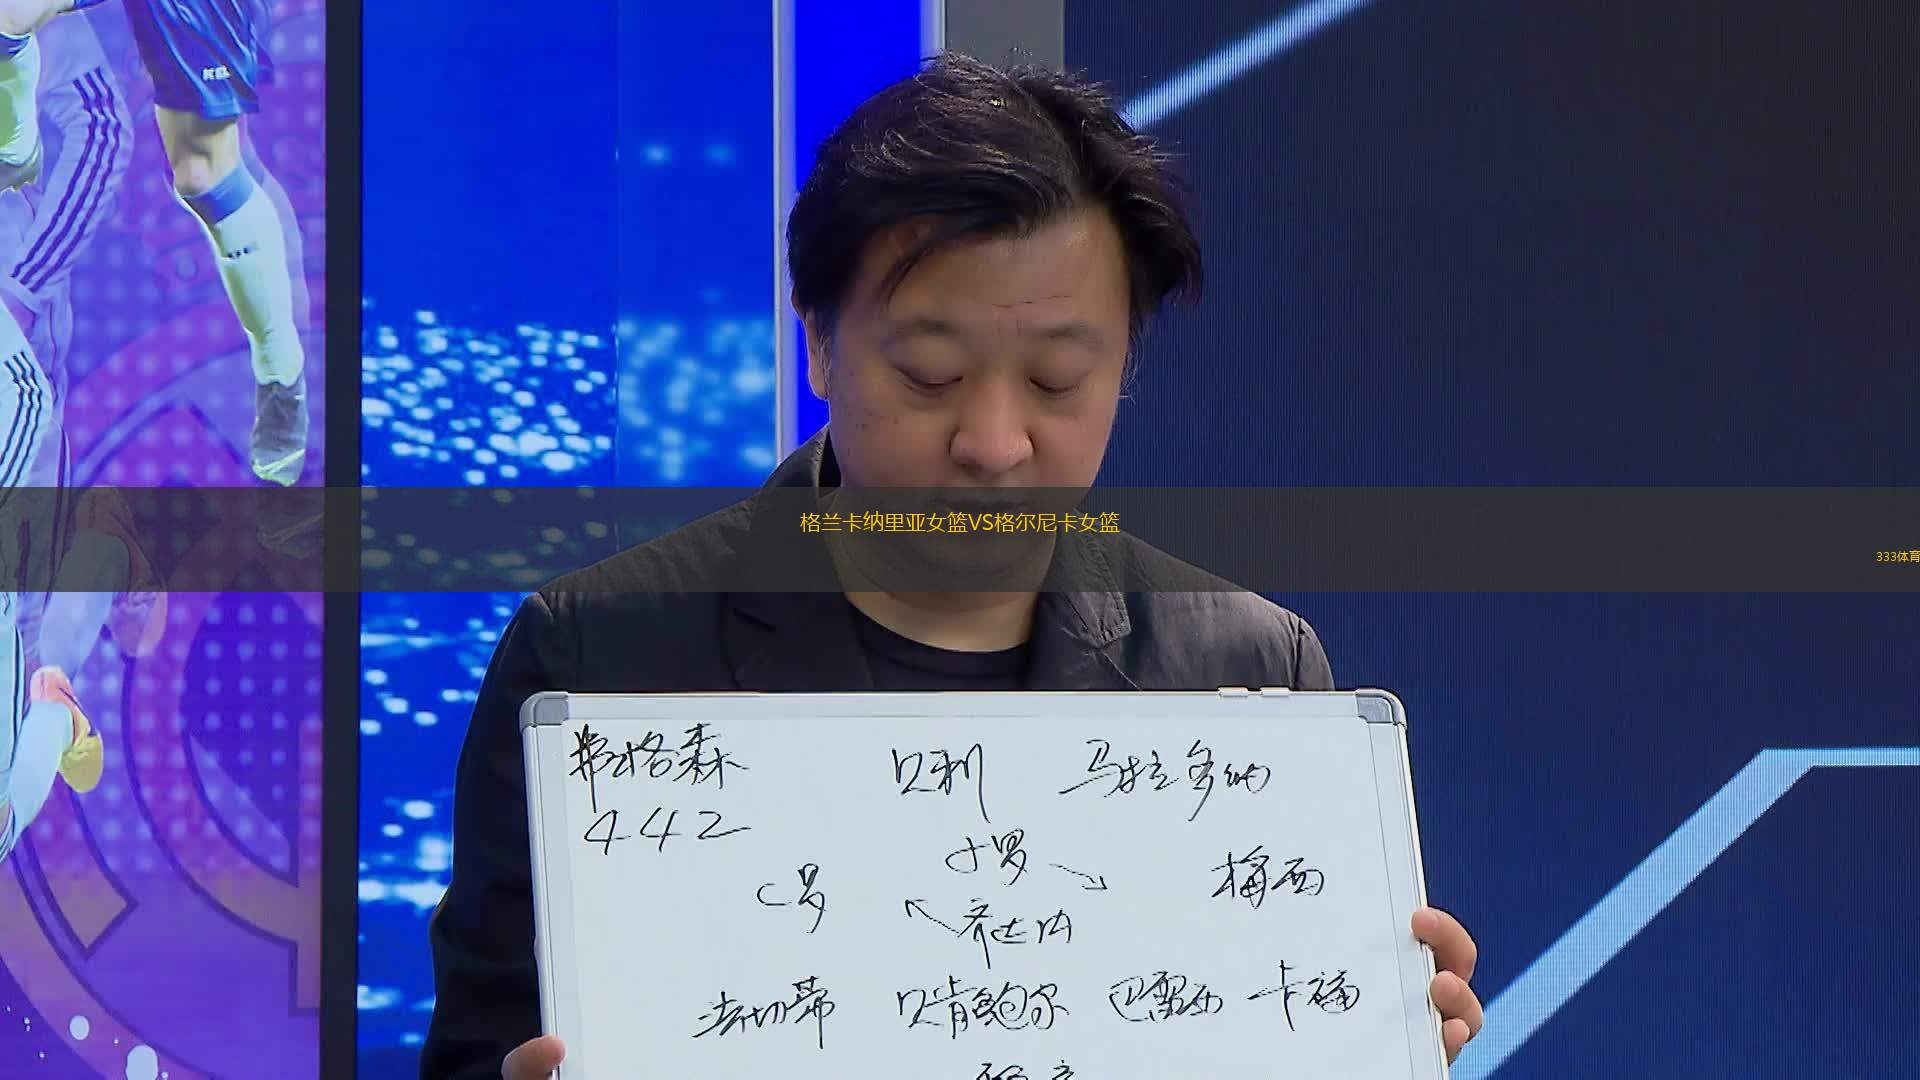 KEL
格兰卡纳里亚女篮VS格尔尼卡女篮
333体育
弗格森 贝利 马拉多纳
442
小罗
C罗 梅西
齐达内
法切蒂 贝肯鲍尔 巴雷西 卡福